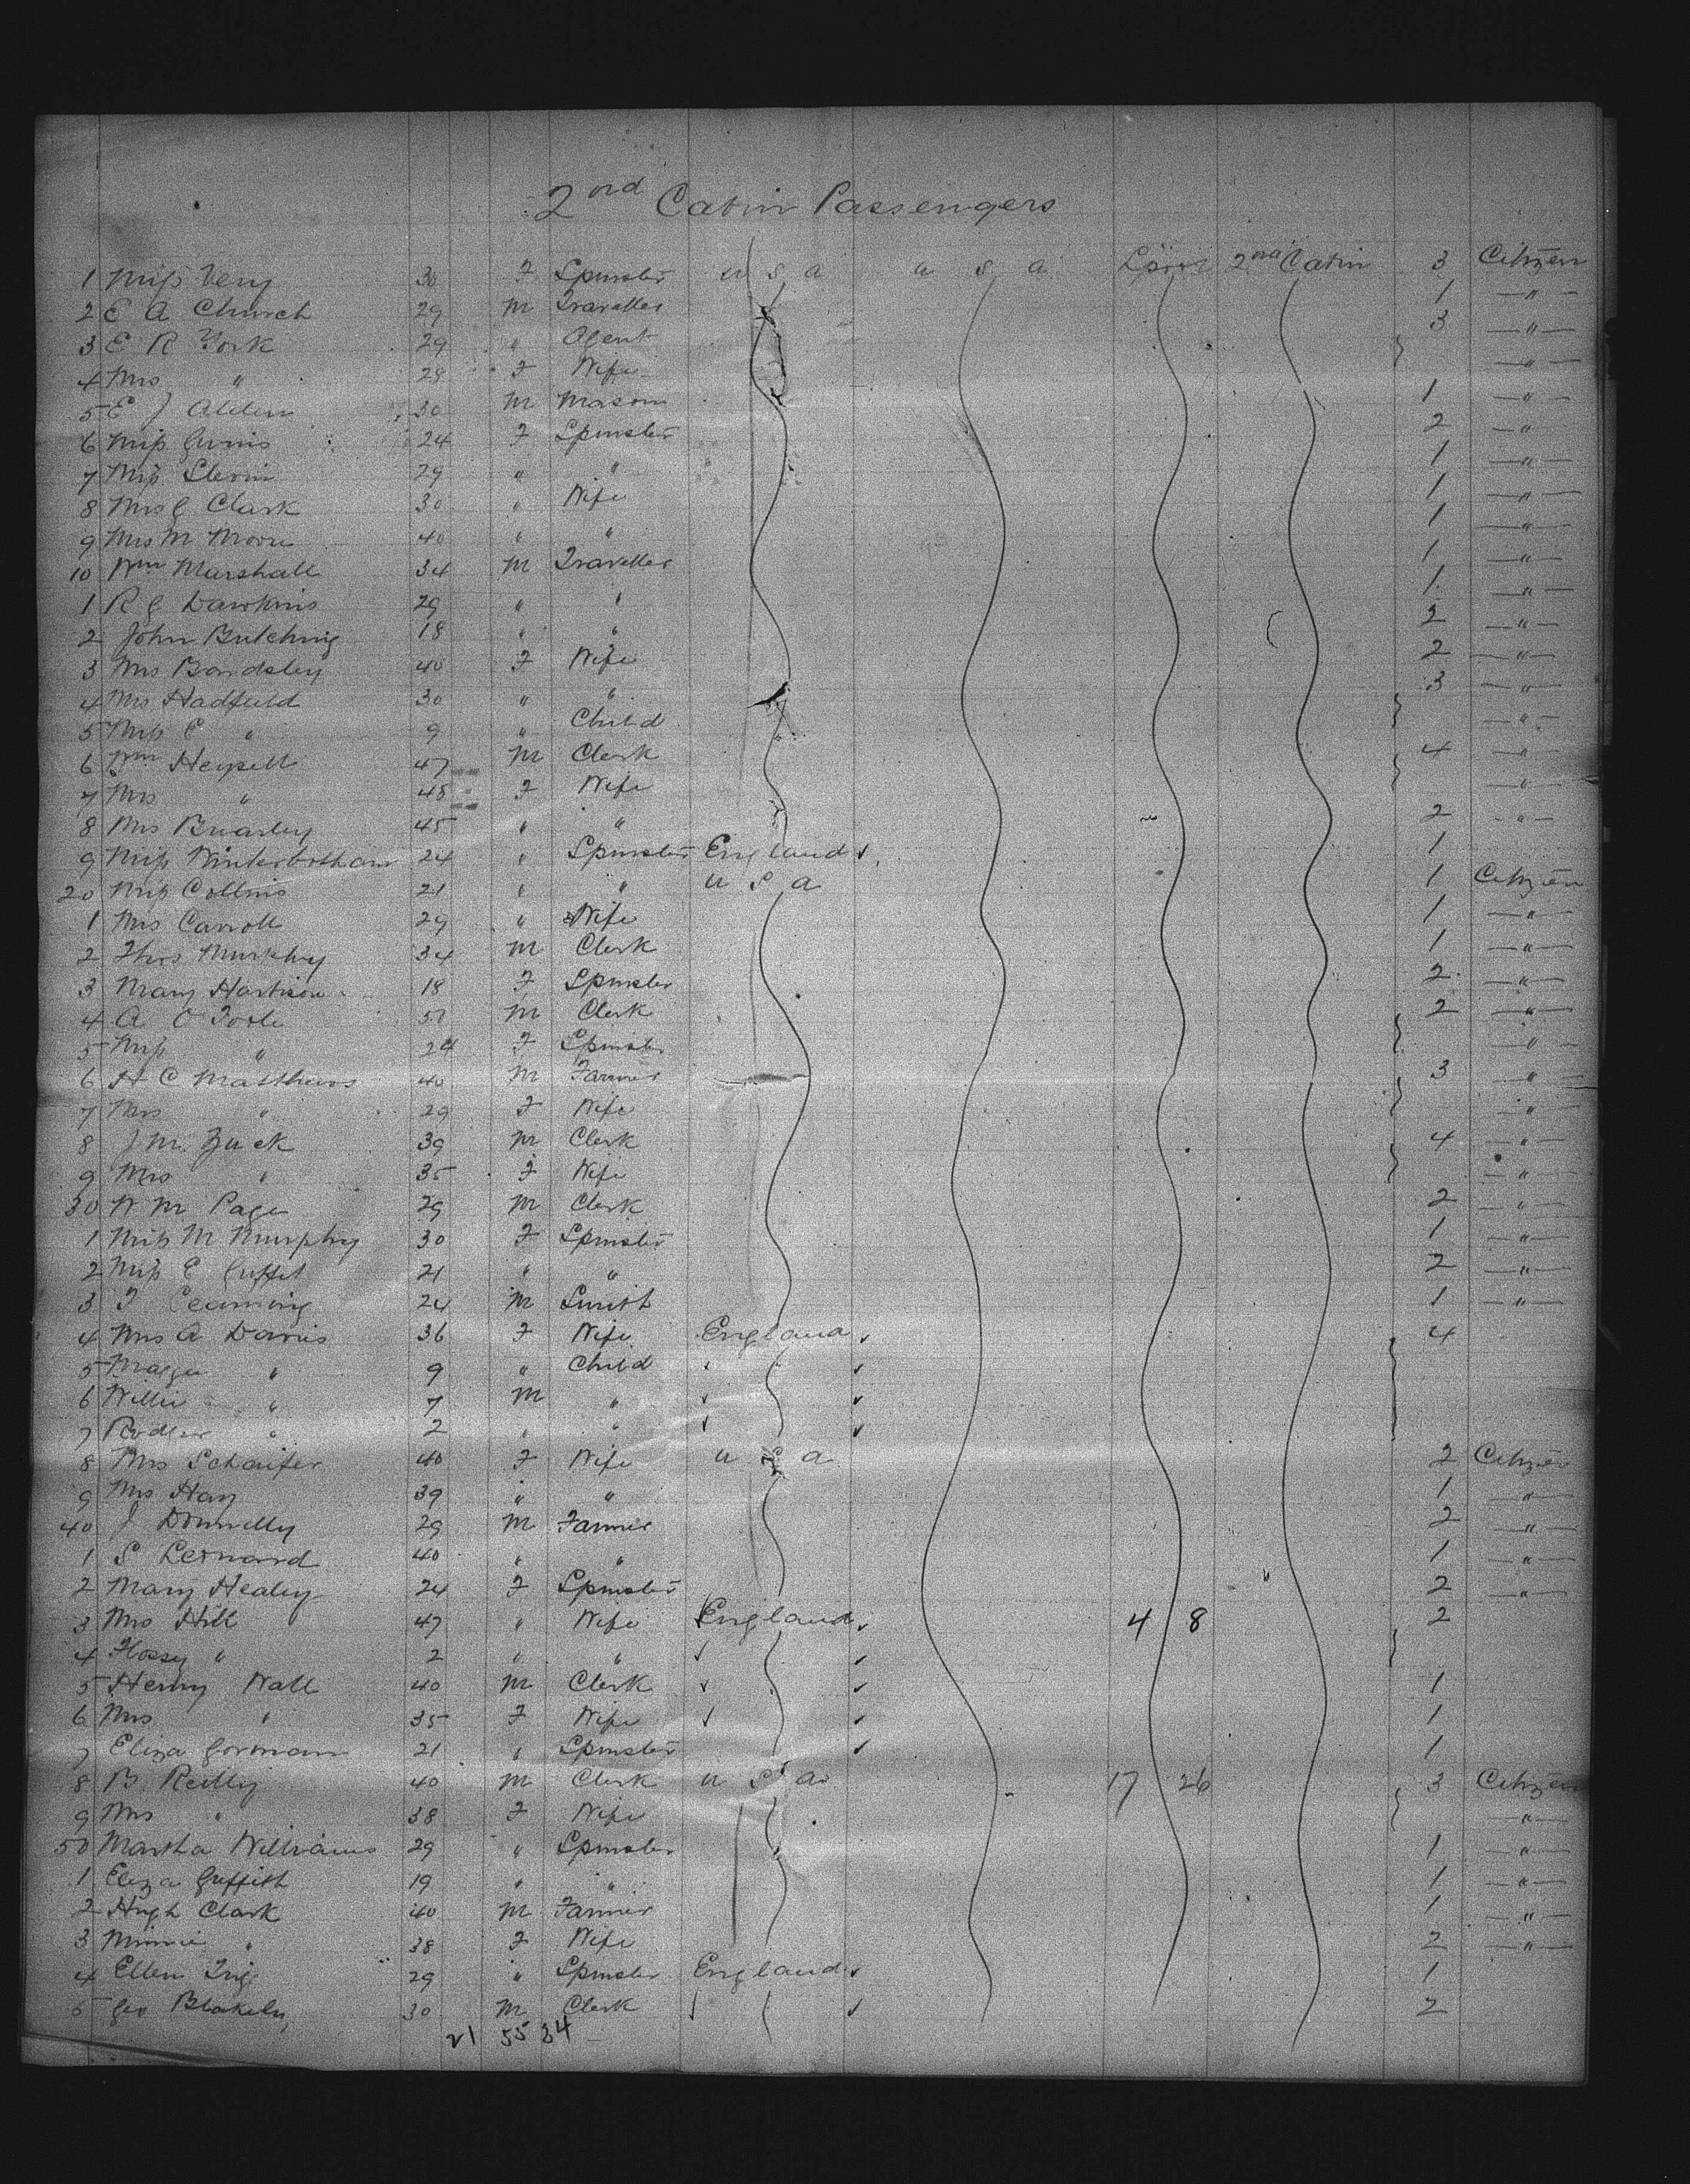 2nd Cabin Passengers
1 Miss Very 30 F Spinster U S A U S A L'pool 2nd Cabin 3 Citizen
2 E A Church 29 M Traveller 1 "
3 E R York 29 " Agent 3 "
4 Mrs " 28 F Wife "
5 E J 30 M Mason 1 "
6 Miss 24 F Spinster 2 "
7 Miss Slevin 29 " " 1 "
8 Mrs G Clark 30 " Wife 1 "
9 Mrs M Moore 40 " " 1 "
10 Wm Marshall 34 M Traveller 1 "
1 R G Dawkins 29 " " 1 "
2 John Butching 18 " " 2 "
3 Mrs Bardsley 40 F Wife 2 "
4 Mrs Hadfield 30 " " 3 "
5 Miss E " 9 " Child "
6 Wm 47 M Clerk 4 "
7 Mrs " 48 F Wife "
8 Mrs Briarley 45 " " 2 "
9 Miss Winterbotham 24 " Spinster England 1
20 Miss Collins 21 " " U S A 1 Citizen
1 Mrs Carroll 29 " Wife 1 "
2 Thos Murphy 34 M Clerk 1 "
3 Mary Harrison 18 F Spinster 2 "
4 A O Toole 51 M Clerk 2 "
5 Miss " 24 F Spinster "
6 H C Matthews 40 M Farmer 3 "
7 Mrs " 29 F Wife "
8 J M Zuck 39 M Clerk 4 "
9 Mrs " 35 F Wife "
30 W M Page 29 M Clerk 2 "
1 Miss M Murphy 30 F Spinster 1 "
2 Miss E 21 " " 2 "
3 T Leaming 24 M Smith 1 "
4 Mrs A Davis 36 F Wife England 4
5 Maggie " 9 " Child
6 Willie " 7 M "
7 " 2 " "
8 Mrs Schaifer 40 F Wife U S A 2 Citizen
9 Mrs Hay 39 " " 1 "
40 J Donnelly 29 M Farmer 2 "
1 S Leonard 40 " " 1 "
2 Mary Healey 24 F Spinster 2 "
3 Mrs Hill 47 " Wife England 4 8 2
4 Flossy " 2 " "
5 Henry Wall 40 M Clerk 1
6 Mrs " 35 F Wife 1
7 Eliza Gorman 21 " Spinster 1
8 B Reilly 40 M Clerk U S A 17 26 3 Citizen
9 Mrs " 38 F Wife "
50 Martha Williams 29 " Spinster 1 "
1 Eliza Griffith 19 " " 1 "
2 Hugh Clark 40 M Farmer 1 "
3 Minnie " 38 F Wife 2 "
4 Ellen Trigg 29 " Spinster England 1
5 Geo Blakeley 30 M Clerk 2
21 55 34